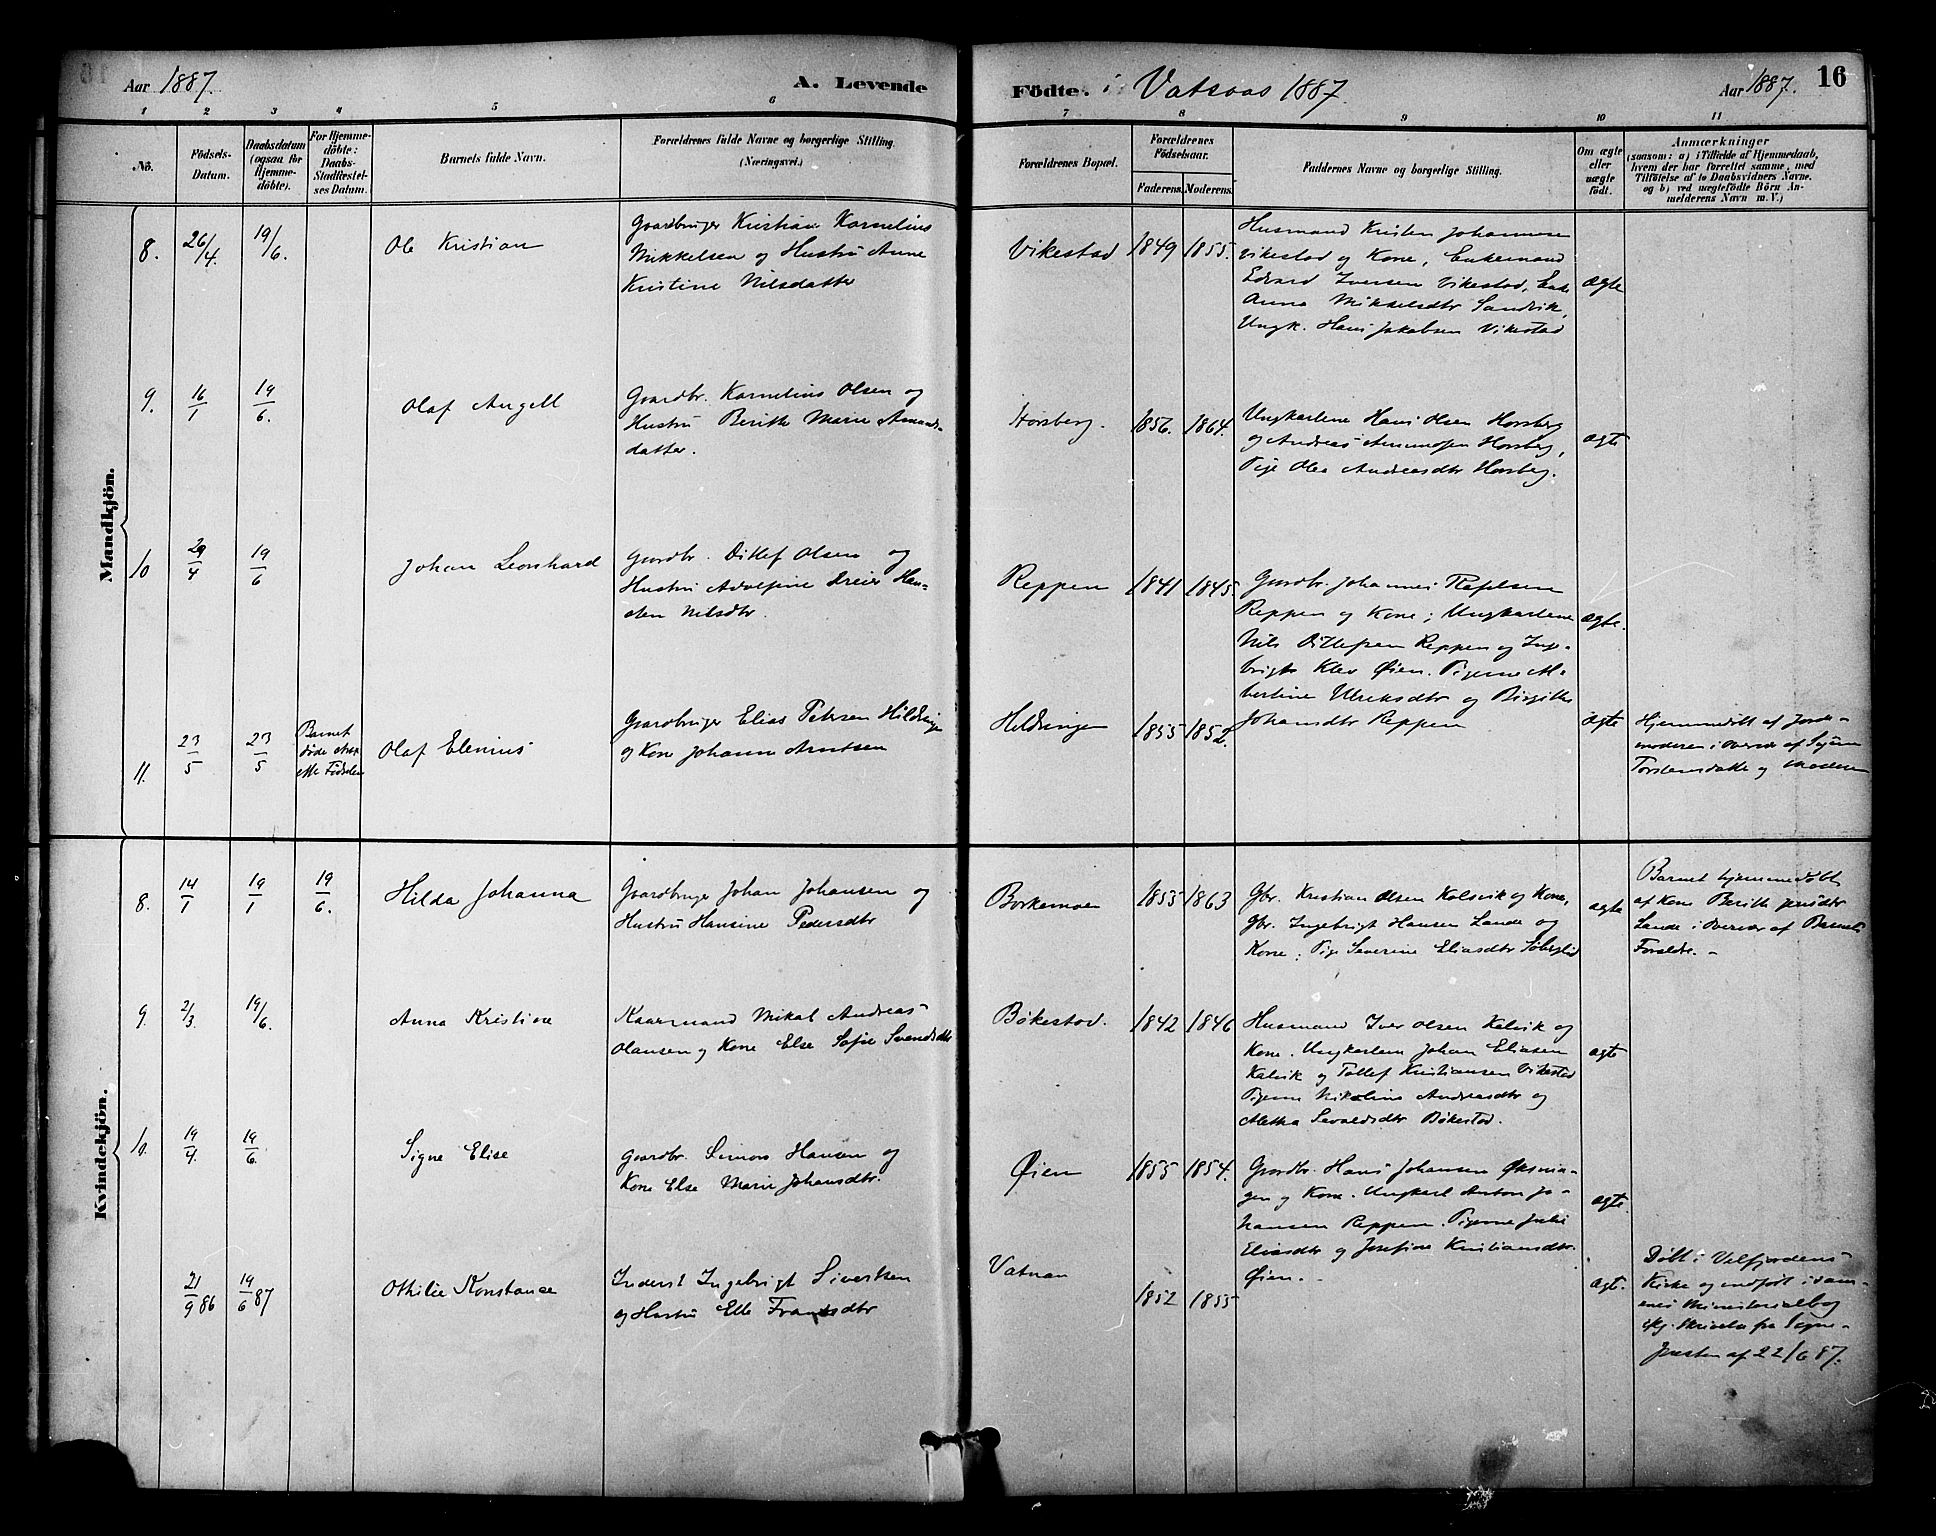 Aar 1887.
A. Levende
Födte. i Vatsaas 1887.
Aar 1887.
16
1 2 3 4 5 6 7 8 9 10 11
No.
Födsels-
Datum.
Daabsdatum
(ogsaa for
Hjemme-
döbte).
For Hjemme-
döbte:
Daabs-
Stadfæstel-
ses Datum.
Barnets fulde Navn.
Forældrenes fulde Navne og borgerlige Stilling.
(Næringsvei.)
Forældrenes Bopæl.
Forældrenes
Födselsaar.
Faderens. Moderens.
Faddernes Navne og borgerlige Stilling.
Om ægte
eller
uægte
födt.
Anmærkninger
(saasom: a) i Tilfælde af Hjemmedaab,
hvem der har forrettet samme, med
Tilföielse af to Daabsvidners Navne,
og b) ved uægtefödte Börn An-
melderens Navn m. V.)
Mandkjön.
8.
26/4.
19/6.
Ole Kristian
Gaardbruger Kristian Kornelius
Mikkelsen og Hustru Anne
Kristine Nilsdatter
Vikestad
1849
1855.
Husmand Kristen Johannesen
Vikestad og Kone, Enkemand
Edvard Iversen Vikestad,
Anna Mikkelsdtr Sandvik,
Ungk. Hans Jakobsen Vikestad
ægte
9.
16/1
19/6.
Olaf Angell
Gaardbr. Kornelius Olsen og
Hustru Berithe Marie Amunds-
datter.
Horsberg.
1856.
1864.
Ungkarlene Hans Olsen Horsberg
og Andreas Amundsen Horsberg,
Pige Olea Andreasdtr Horsberg.
ægte
10
29/4
19/6
Johan Leonhard
Gaardbr. Ditlef Olsen og
Hustru Adolfine Dreier Han-
sen Nilsdtr.
Reppen
1841
1845.
Gaardbr. Johannes
Reppen og Kone; Ungkarlene
Nils Ditlefsen Reppen og Inge-
brigt Øien. Pigerne Al-
bertine Ulriksdtr og Birgitte
Johansdtr Reppen
ægte.
11.
23/5
23/5
Barnet
døde strax
efter Fødselen
Olaf Elenius
Gaardbruger Elias Petersen Hildringen
og Kone Johanna Arntsen
Hildringen
1855
1852.
ægte
Hjemmedøbt af Jorde-
moderen i Overvær af
Torstensdatter og Moderen
Kvindekjön.
8.
14/1
19/1
19/6.
Hilda Johanna
Gaardbruger Johan Johansen og
Hustru Hansine Pedersdtr
Borkemoen
1855
1863
Gbr. Kristian Olsen Kalvik og Kone,
Gbr. Ingebrigt Hansen Lande og
Kone; Pige Severine Eliasdtr
ægte
Barnet hjemmedøbt
af Kone Berithe Jensdtr
Lande i Overvær af Barnets
Forældre. -
9.
2/3.
19/6.
Anna Kristine
Kaarmand Mikal Andreas
Olausen og Kone Else Sofie Svendsdtr
Bökestad.
1842
1846
Husmand Iver Olsen Kalvik og
Kone. Ungkarlene Johan Eliasen
Kalvik og Tollef Kristiansen Vikestad
Pigerne Nikoline Andreasdtr og
Metha Sevaldsdtr Bökestad.
ægte
10.
19/4.
19/6.
Signe Elise
Gaardbr. Simon Hansen og
Kone Else Marie Johansdtr.
Øien
1855
1854.
Gaardbr. Hans Johansen Øksnin-
gen og Kone. Ungkarl Anton Jo-
hansen Reppen. Pigerne Julie
Eliasdtr og Josefine Kristiansdtr.
Øien. -
ægte.
21/9 86
19/6 87
Othilie Konstance
Inderst Ingebrigt Sivertsen
og Hustru Elle Fransdtr
Vatnan
1852
1855
ægte.
Døbt i Velfjordens
Kirke og indført i sam-
mes Ministerialbog
ifg. Skrivelse fra Sogne-
presten af 22/6 87.